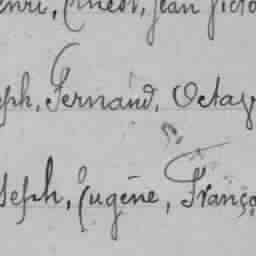 enri, Ernest, Jean Victo
eph, Fernand, Octav
seph, Eugène, Franço